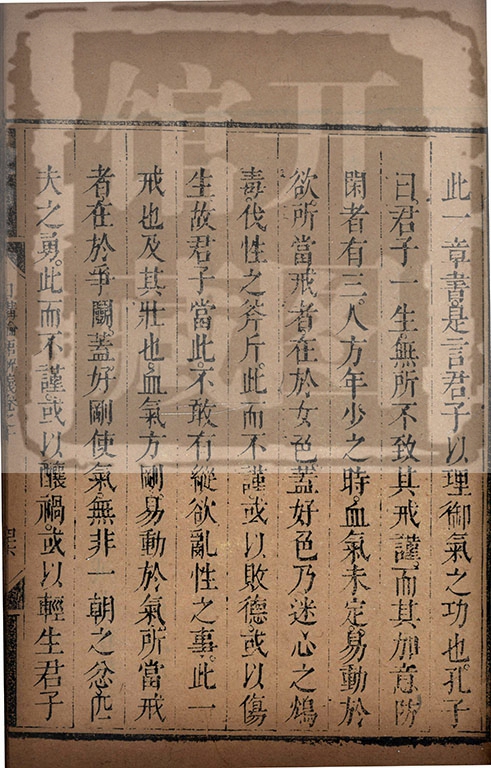 此一章書是言君子以理御氣之功也孔子
曰君子一生無所不致其戒謹而其加意防
閑者有三人方年少之時血氣未定易動於
欲所當戒者在於女色蓋好色乃迷心之鴆
毒伐性之斧斤此而不謹或以敗德或以傷
生故君子當此不敢有縱欲亂性之事此一
戒也及其壯也血氣方剛易動於氣所當戒
者在於爭鬭蓋好剛使氣無非一朝之忿匹
夫之勇此而不謹或以釀禍或以輕生君子